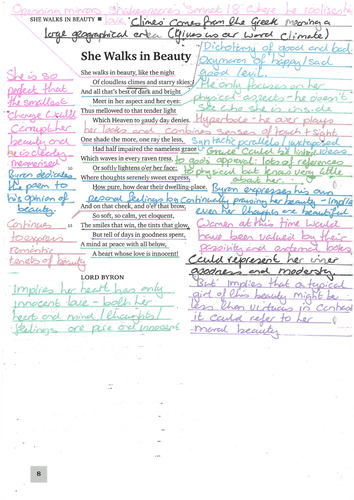 Openning mirrors Shakespeares Sonnet 18 where he idolises his
SHE WALKS IN BEAUTY
love 'Climes' comes from the Greek meaning a
large geographical area (gives us our word climate)
She Walks in Beauty
She walks in beauty, like the night
Of cloudless climes and starry skies;
And all that's best of dark and bright
Meet in her aspect and her eyes:
Thus mellowed to that tender light
Which Heaven to gaudy day denies.
One shade the more, one ray the less,
Had half impaired the nameless grace
Which waves in every raven tress,
Or softly lightens o'er her face;
Where thoughts serenely sweet express,
How pure, how dear their dwelling-place.
And on that cheek, and o'er that brow,
So soft, so calm, yet eloquent,
The smiles that win, the tints that glow,
But tell of days in goodness spent,
A mind at peace with all below,
A heart whose love is innocent!
LORD BYRON
Dichotomy of good and bad.
Oxymoron of happy/sad
good/evil.
He only focuses on her
physical aspects - he doesn't
see who she is inside
Hyperbole - he over plays
her looks and combines senses of touch + sight
Syntactic parallels / juxtaposed
Grace could be linked ideas
to gods approval: lots of references
to physical but knows very little
about her
Byron expresses his own
personal feelings by continually praising her beauty - implies
even her thoughts are beautiful
Women at this time would
have been valued by their
passivity and external looks
Could represent her inner
goodness and modesty
'But' implies that a typical
girl of this beauty might be
less than virtuous in contrast
it could refer to her
moral beauty
She is so
perfect that
the smallest
change would
corrupt her
beauty and
he is clearly
mesmerised
Byron dedicates
this poem to
his opinion of
beauty
Continues
to express
romantic
tenets of beauty
Implies her heart has only
innocent love - both her
heart and mind / thoughts /
feelings are pure and innocent
8